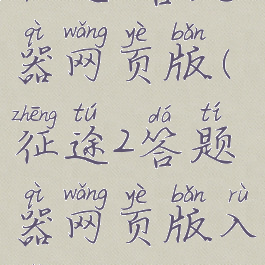 qì wǎng yè bǎn
器网页版(
zhēng tú dá tí
征途2答题
qì wǎng yè bǎn rù
器网页版入